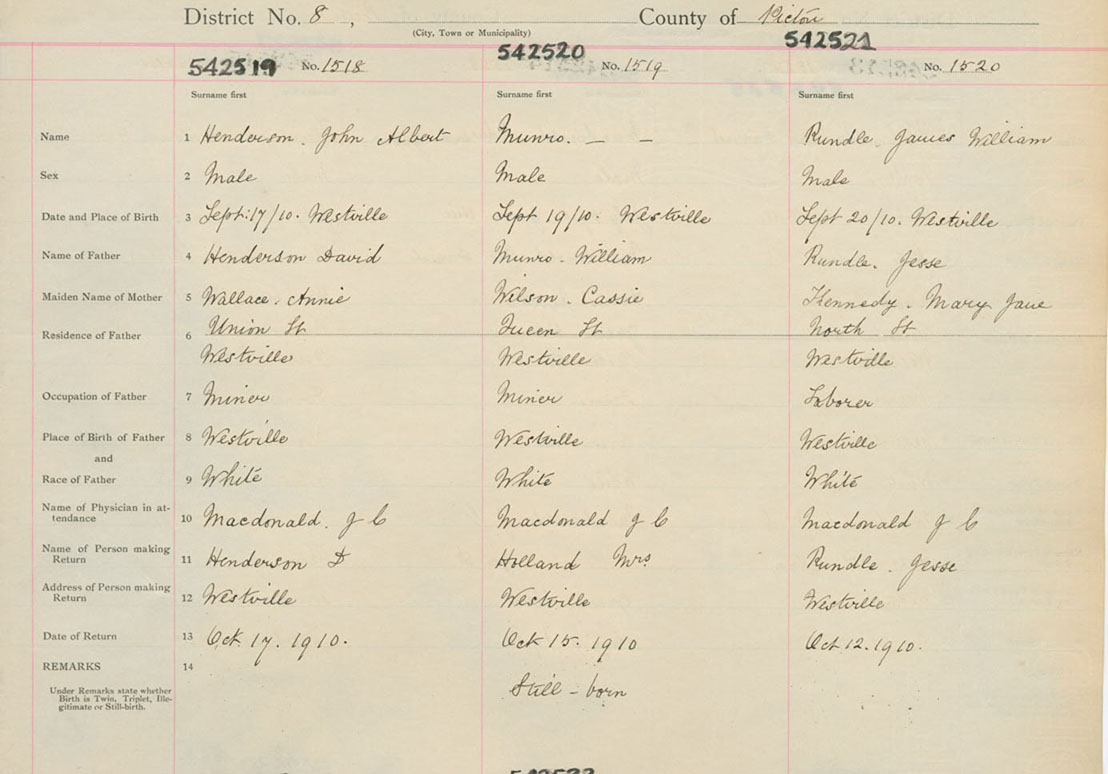 District No. 8 , County of Pictou
(City, Town or Municipality)
542519 No. 1518 542520 No. 1519 542521 No. 1520
Surname first Surname first Surname first
Name 1 Henderson. John Albert Munro. — — Rundle. James William
Sex 2 Male Male Male
Date and Place of Birth 3 Sept. 17/10. Westville Sept 19/10. Westville Sept 20/10. Westville
Name of Father 4 Henderson David Munro. William Rundle. Jesse
Maiden Name of Mother 5 Wallace. Annie Wilson. Cassie Kennedy. Mary Jane
Residence of Father 6 Union St Queen St North St
Westville Westville Westville
Occupation of Father 7 Miner Miner Laborer
Place of Birth of Father 8 Westville Westville Westville
and
Race of Father 9 White White White
Name of Physician in at-
tendance 10 Macdonald. J C Macdonald J C Macdonald J C
Name of Person making
Return 11 Henderson D Holland Mrs Rundle. Jesse
Address of Person making
Return 12 Westville Westville Westville
Date of Return 13 Oct. 17. 1910. Oct 15. 1910 Oct 12. 1910.
REMARKS 14
Under Remarks state whether
Birth is Twin, Triplet, Ille-
gitimate or Still-birth.
Still - born